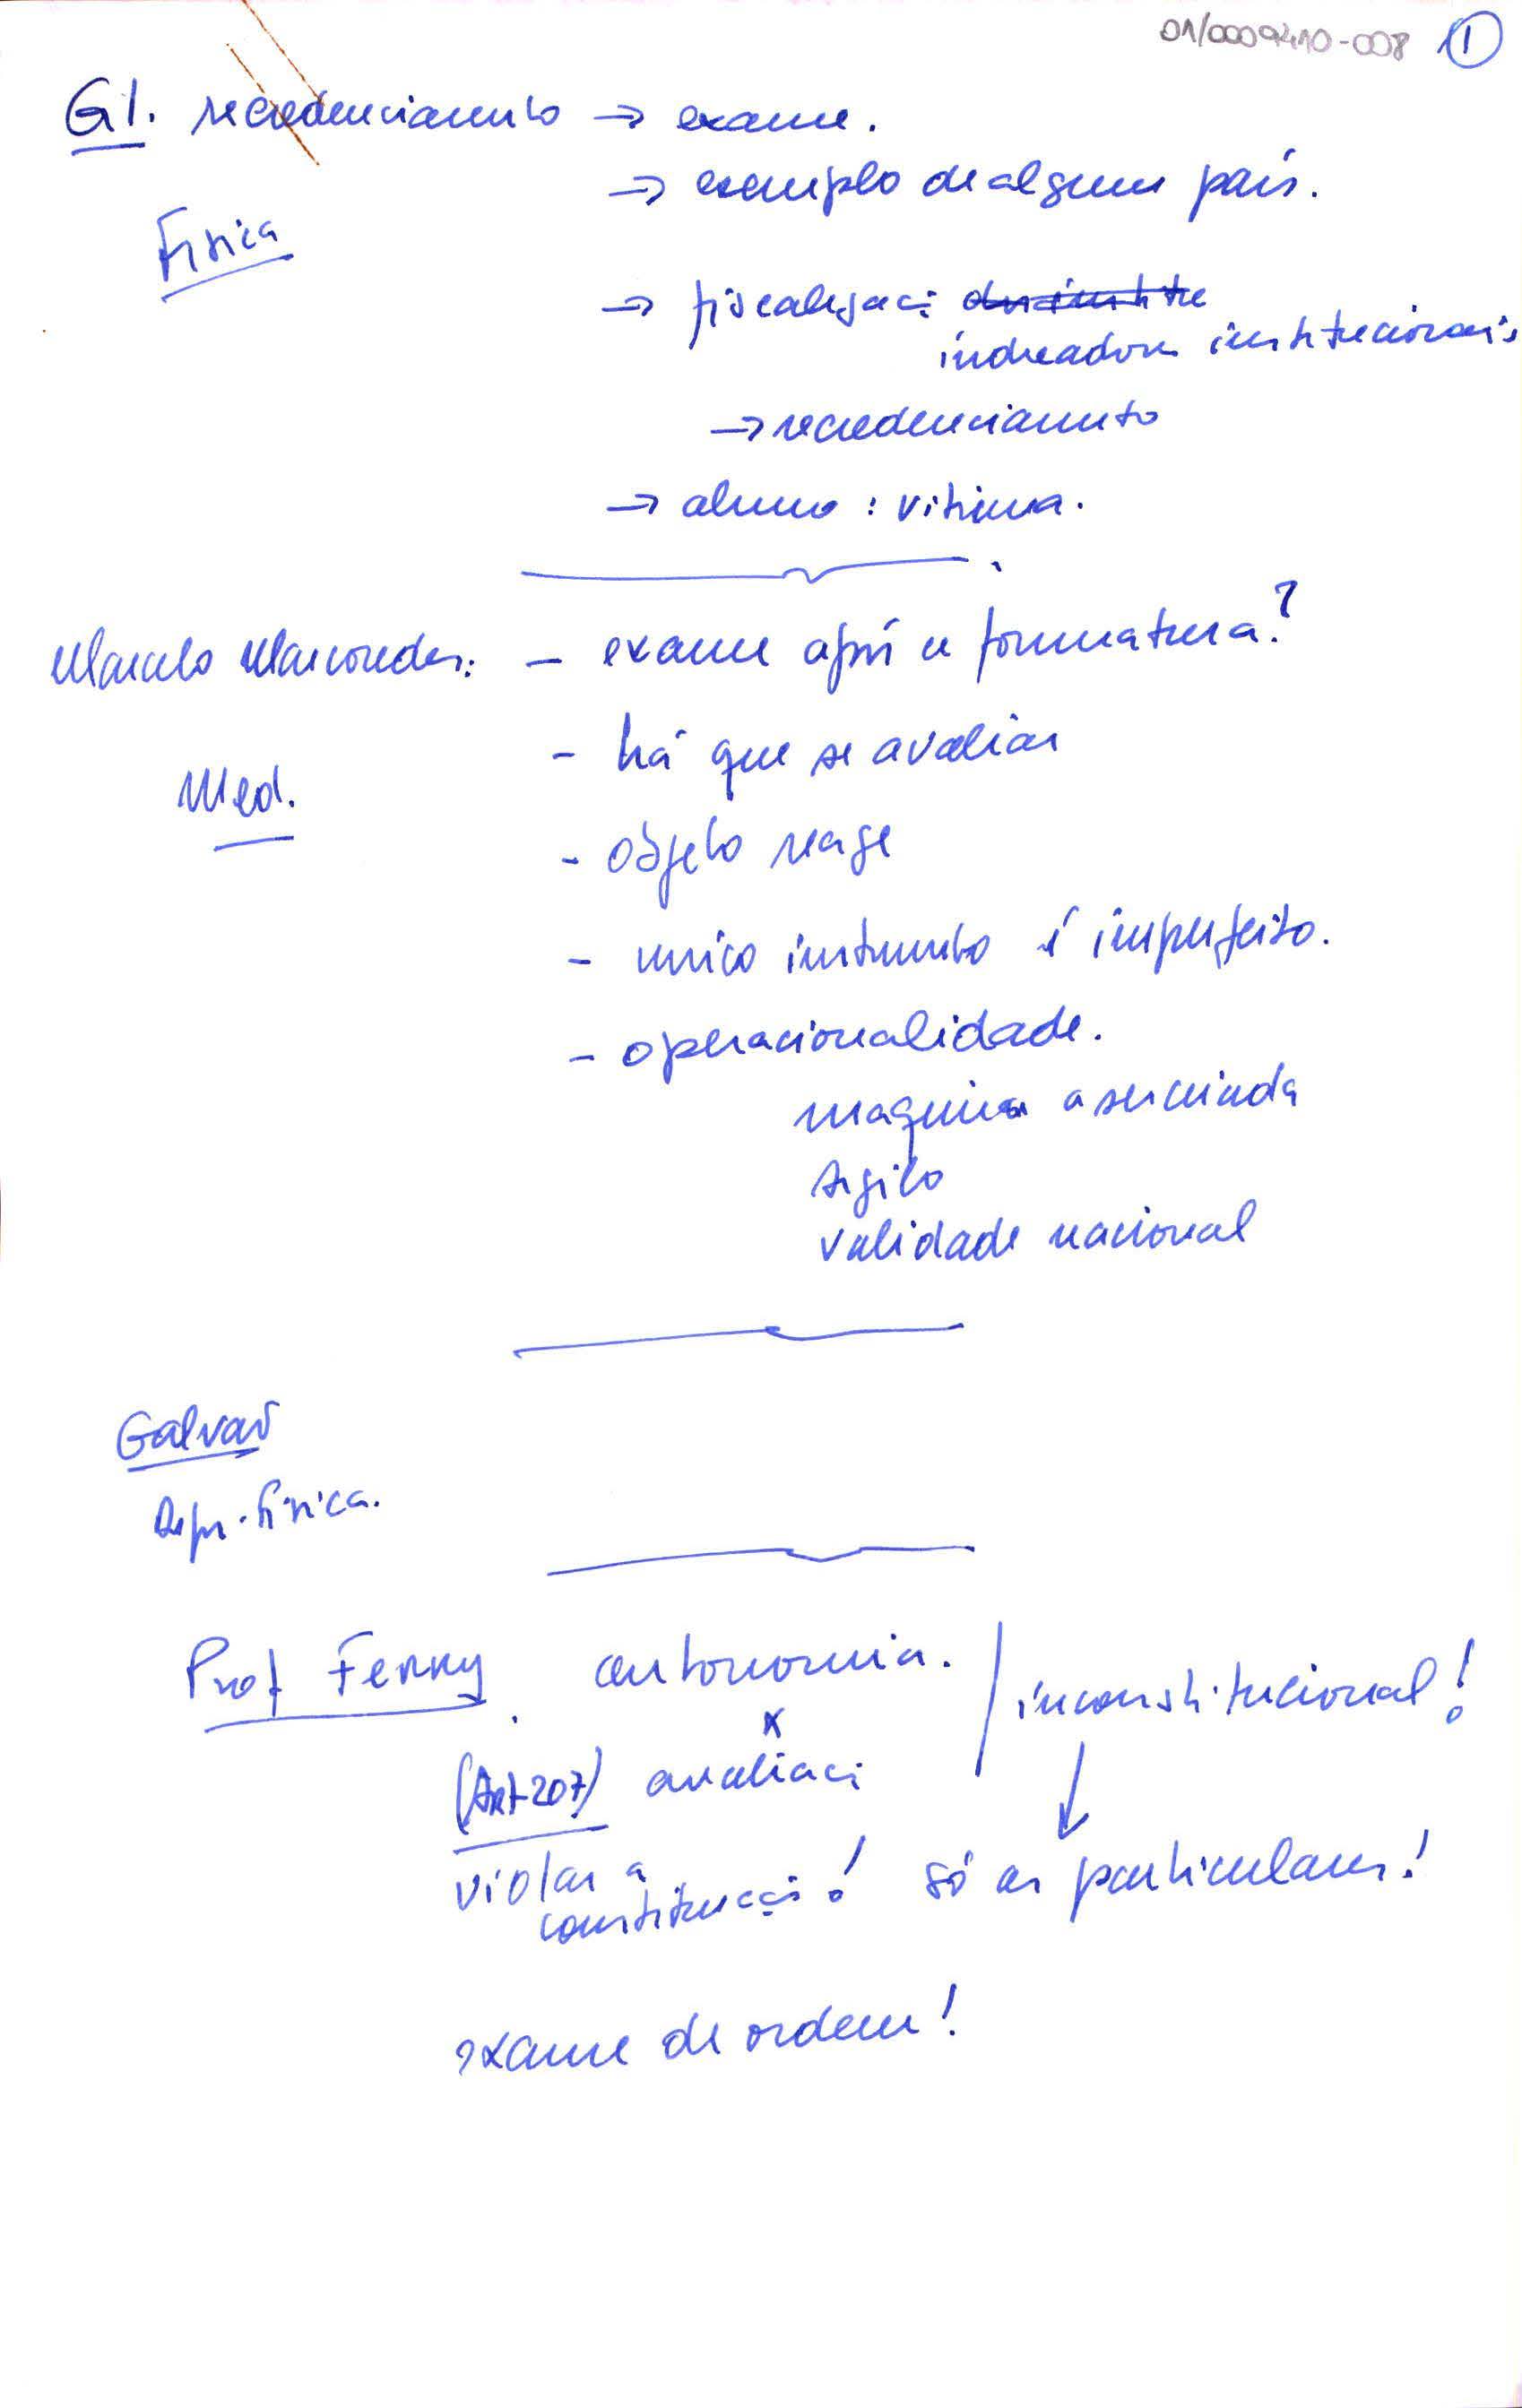 01/0009410-008 1
G1. recredenciamento → exame.
→ exemplo de algum país.
Física
→ fiscalizaci
indicadores institucionais
→ recredenciamento
→ aluno : vitima.
Marcelo Marcondes: - exame após a formatura?
- há que se avaliar
Med.
- objeto reage
- unico instrumento é imperfeito.
- operacionalidade.
maquina
sigilo
validade nacional
Galvão
Depr. Física.
Prof Ferry. autonomia. / inconstitucional!
x
(Art 207) avaliaci
violar a constituiçci! só as particulares!
exame de ordem!